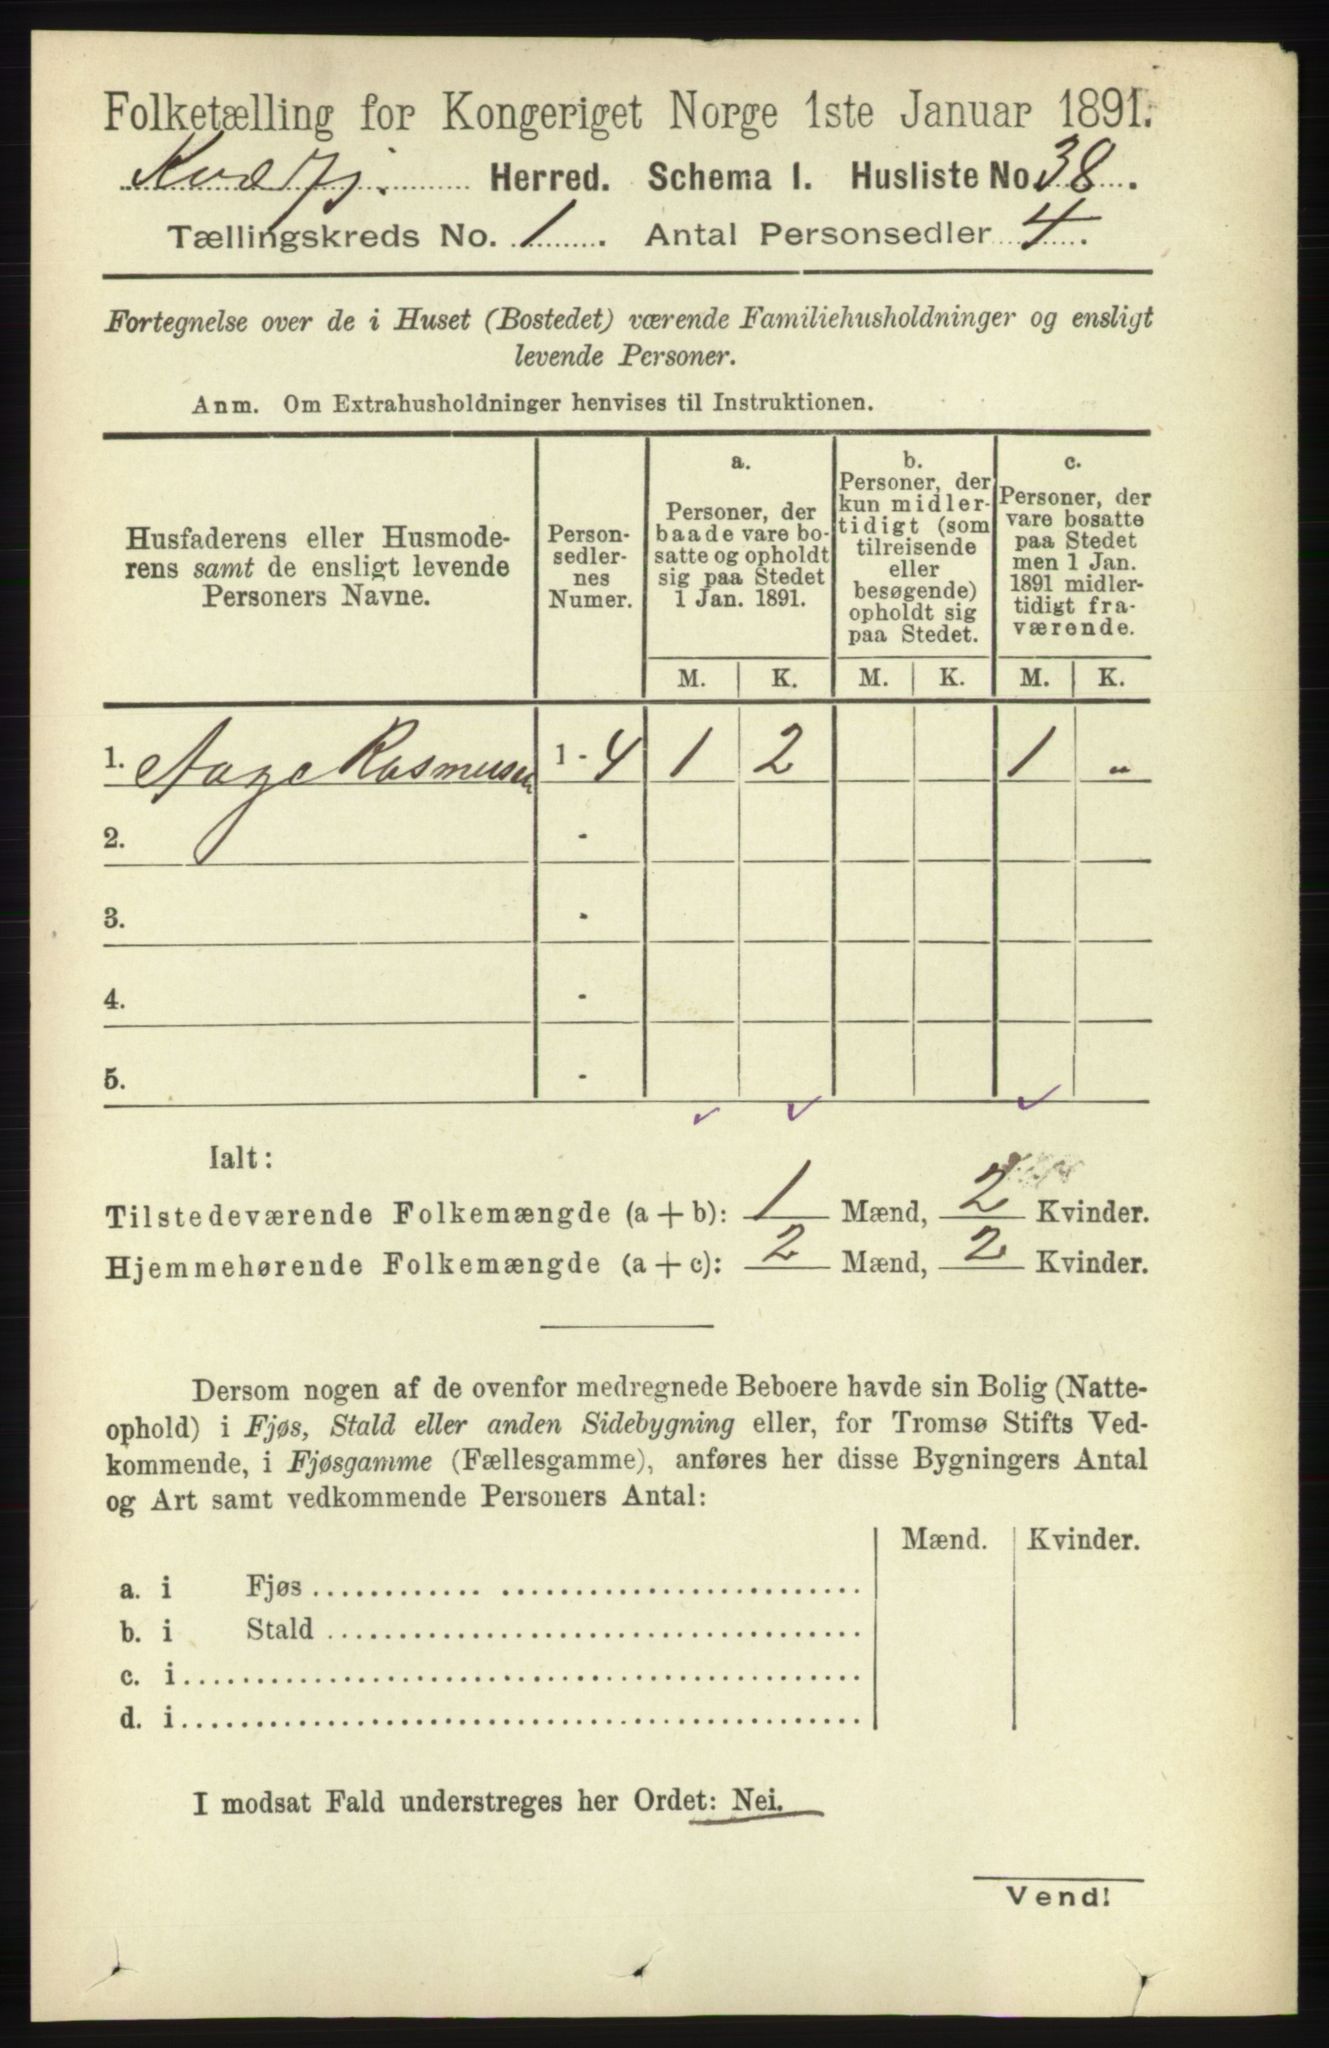 Folketælling for Kongeriget Norge 1ste Januar 1891.
Kvæfj. Herred. Schema 1. Husliste No. 38.
Tællingskreds No. 1. Antal Personsedler 4.
Fortegnelse over de i Huset (Bostedet) værende Familiehusholdninger og ensligt
levende Personer.
Anm. Om Extrahusholdninger henvises til Instruktionen.
Husfaderens eller Husmode-
rens samt de ensligt levende
Personers Navne.
Person-
sedler-
nes
Numer.
a.
Personer, der
baade vare bo-
satte og opholdt
sig paa Stedet
1 Jan. 1891.
b.
Personer, der
kun midler-
tidigt (som
tilreisende
eller
besøgende)
opholdt sig
paa Stedet.
c.
Personer, der
vare bosatte
paa Stedet
men 1 Jan.
1891 midler-
tidigt fra-
værende.
M. K. M. K. M. K.
1. Aage Rasmussen 1 - 4 1 2 1 „
2. -
3. -
4. -
5. -
Ialt:
Tilstedeværende Folkemængde (a + b): 1 Mænd, 2 Kvinder.
Hjemmehørende Folkemængde (a + c): 2 Mænd, 2 Kvinder.
Dersom nogen af de ovenfor medregnede Beboere havde sin Bolig (Natte-
ophold) i Fjøs, Stald eller anden Sidebygning eller, for Tromsø Stifts Ved-
kommende, i Fjøsgamme (Fællesgamme), anføres her disse Bygningers Antal
og Art samt vedkommende Personers Antal:
Mænd. Kvinder.
a. i Fjøs
b. i Stald
c. i
d. i
I modsat Fald understreges her Ordet: Nei.
Vend!